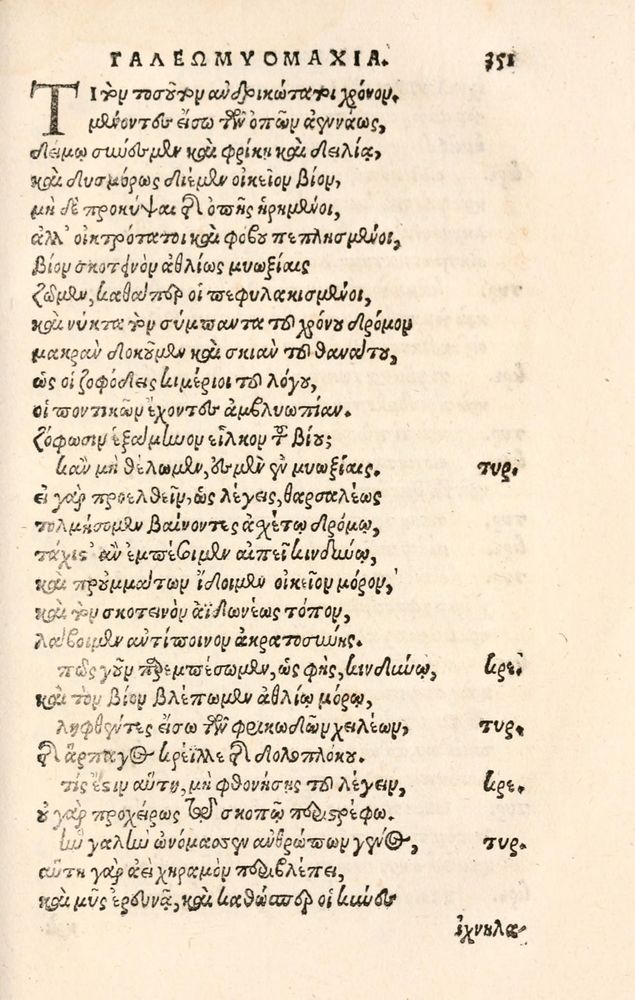 ΓΑΛΕΩΜΥΟΜΑΧΙΑ. 351
Τί τὸν τοσοῦτον ἀνδρικώτατοι χρόνον.
μένοντες εἴσω τῶν ὀπῶν ἀεννάως,
δειμῷ σύνεσμεν καὶ φρίκῃ καὶ δειλίᾳ,
καὶ δυσμόρως δίιμεν οἰκεῖον βίον,
μὴ δὲ προκύψαι τῆς ὀπῆς ᾑρημένοι,
ἀλλ' οἰκτρότατοι καὶ φόβου πεπλησμένοι,
βίον σκοτεινὸν ἀθλίως μυωξίαις
ζῶμεν, καθάπερ οἱ πεφυλακισμένοι,
καὶ νύκτα τὸν σύμπαντα τοῦ χρόνου δρόμον
μακρὰν δοκοῦμεν καὶ σκιὰν τοῦ θανάτου,
ὡς οἱ ζοφώδεις κιμέριοι τοῦ λόγου,
οἱ ποντικῶν ἔχοντες ἀμβλυωπίαν.
ζόφωσιν ἑξάμηνον εἷλκον τοῦ βίου;
κἂν μὴ θέλωμεν, ἐσμὲν ἐν μυωξίαις. τυρ.
εἰ γὰρ προελθεῖν, ὡς λέγεις, θαρσαλέως
τολμήσομεν βαίνοντες ἀχέτῳ δρόμῳ,
τάχιστ' ἂν ἐμπέσοιμεν αἰπεῖ κινδύνῳ,
καὶ πρὸ ὀμμάτων ἴδοιμεν οἰκεῖον μόρον,
καὶ τὸν σκοτεινὸν ἀϊδωνέως τόπον,
λάβοιμεν ἀντίποινον ἀκρατοσύνης.
πῶς γοῦν περιεμπέσωμεν, ὡς φῂς, κινδύνῳ, κρε.
καὶ τὸν βίον βλέπωμεν ἀθλίῳ μόρῳ,
ληφθέντες εἴσω τῶν φρικωδῶν χειλέων, τυρ.
τῆς ἅρπαγος κρεῖλλε τῆς δολοπλόκου.
τίς ἐστιν αὕτη, μὴ φθονήσῃς τοῦ λέγειν, κρε.
οὐ γὰρ προχείρως τῷ σκοπῷ περιστρέφω.
ἣν γαλῆν ὠνόμασεν ἀνθρώπων γένος, τυρ.
αὕτη γὰρ ἀεὶ χηραμὸν περιβλέπει,
καὶ μῦς ἐρευνᾷ, καὶ καθάπερ οἱ κύνες
ἰχνηλα-